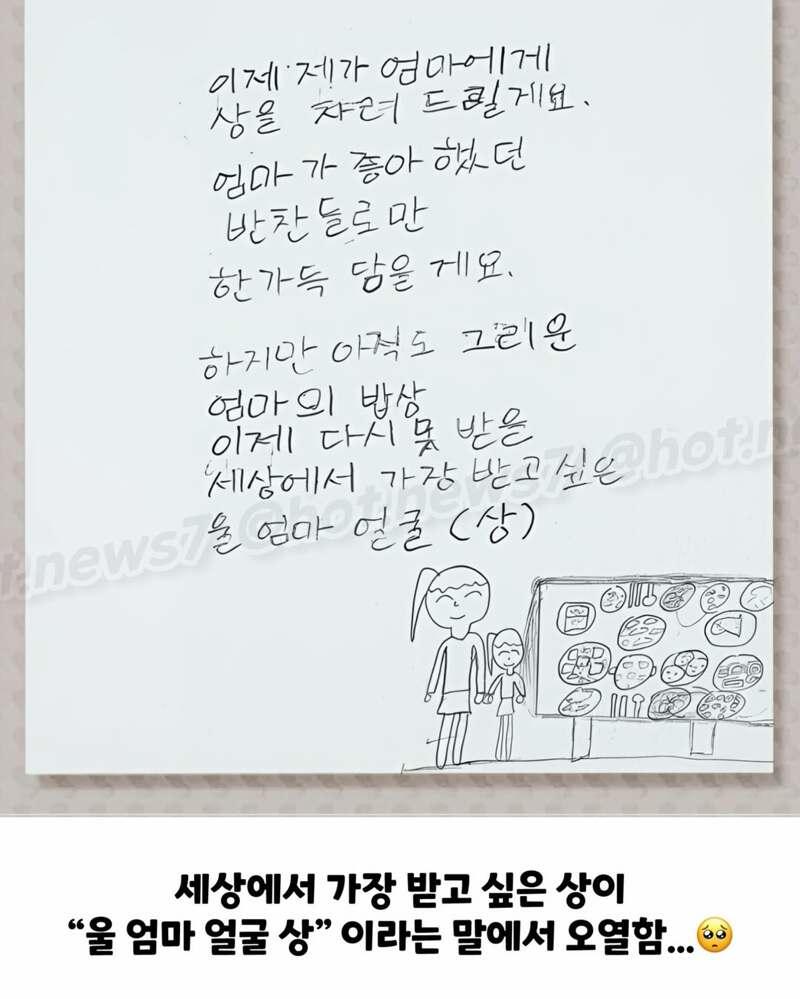 이제 제가 엄마에게
상을 차려 드릴게요.
엄마가 좋아했던
반찬들로만
한가득 담을게요.
하지만 아직도 그리운
엄마의 밥상
이제 다시 못 받을
세상에서 가장 받고 싶은
울 엄마 얼굴 (상)
t.news7 @hot.news7 @hot.n
세상에서 가장 받고 싶은 상이
“울 엄마 얼굴 상” 이라는 말에서 오열함...🥺